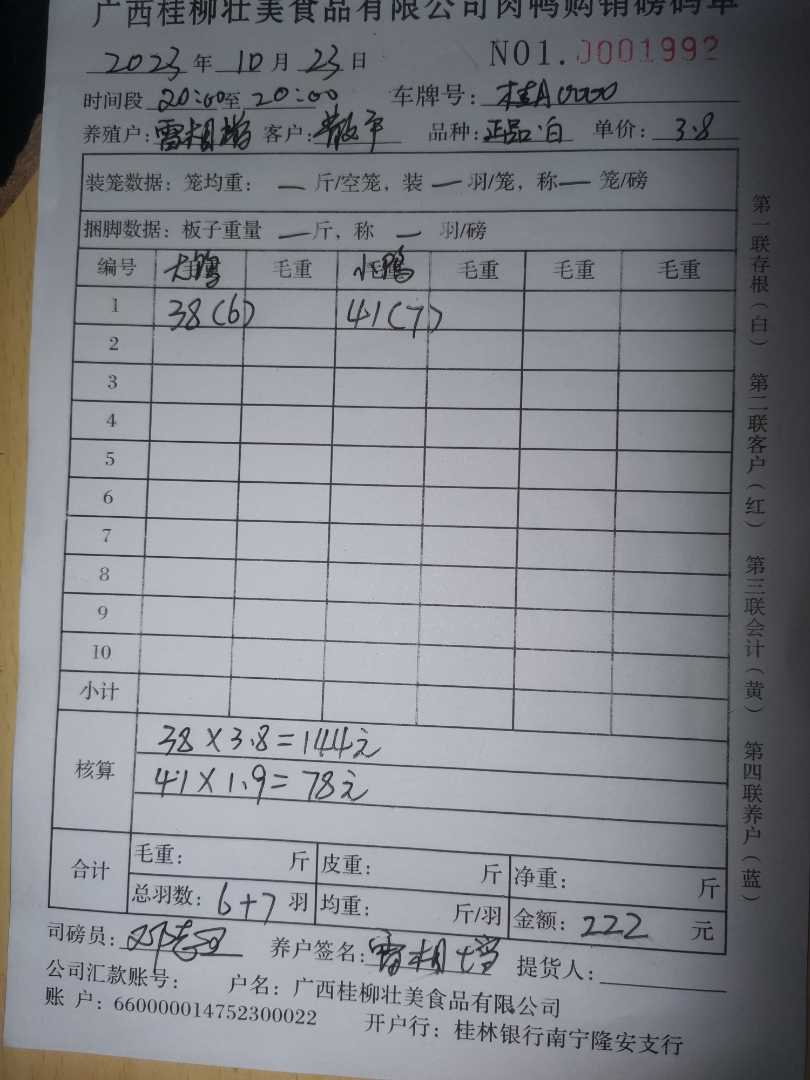 广西桂柳壮美食品有限公司肉鸭购销磅码单
2023年10月23日 NO1.0001992
时间段 20:00至20:00 车牌号：桂A0000
养殖户：雷相增 客户：散户 品种：正品.白 单价：3.8
装笼数据：笼均重：— 斤/空笼，装 — 羽/笼，称 — 笼/磅
捆脚数据：板子重量 — 斤，称 — 羽/磅
编号 大鸭 毛重 小鸭 毛重 毛重 毛重
1 38(6) 41(7)
2
3
4
5
6
7
8
9
10
小计
核算 38×3.8=144元
41×1.9=78元
合计 毛重： 斤 皮重： 斤 净重： 斤
总羽数：6+7羽 均重： 斤/羽 金额：222元
司磅员： 养户签名：雷相增 提货人：
公司汇款账号： 户名：广西桂柳壮美食品有限公司
账 户：660000014752300022 开户行：桂林银行南宁隆安支行
第一联存根（白） 第二联客户（红） 第三联会计（黄） 第四联养户（蓝）